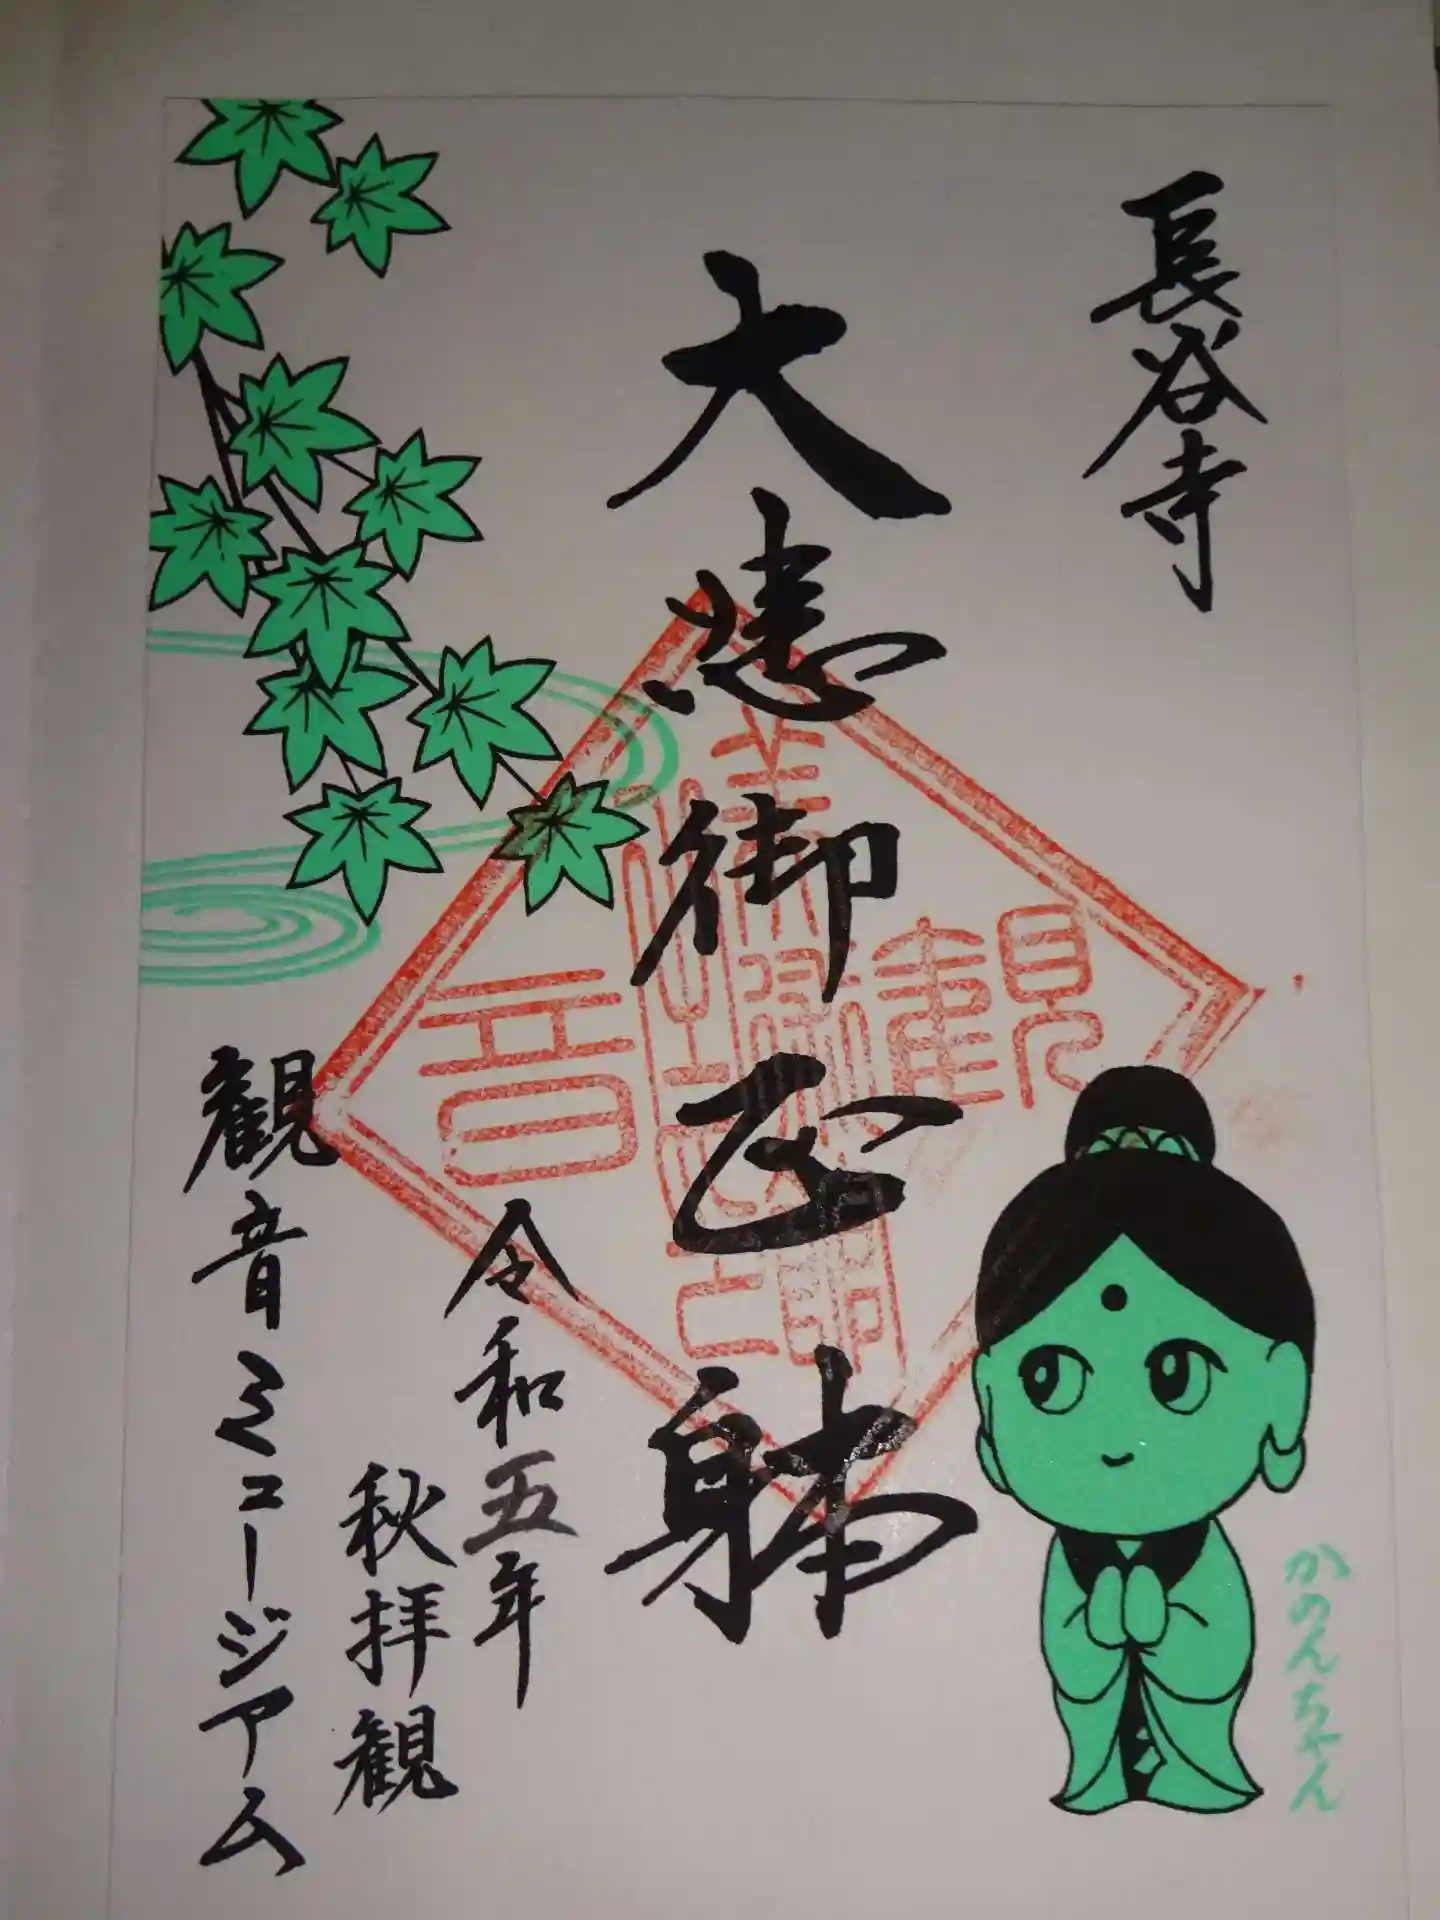 長谷寺
かのんちゃん
大悲御正躰
観音
令和五年
秋拝観
観音ミュージアム